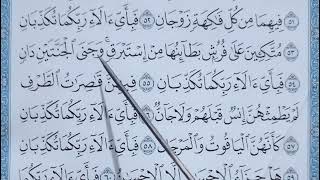 ٥١ فِيهِمَا مِن كُلِّ فَٰكِهَةٍ زَوْجَانِ ٥٢ فَبِأَيِّ ءَالَآءِ رَبِّكُمَا تُكَذِّبَانِ
٥٣ مُتَّكِـِٔينَ عَلَىٰ فُرُشٍۭ بَطَآئِنُهَا مِنْ إِسْتَبْرَقٍ ۚ وَجَنَى ٱلْجَنَّتَيْنِ دَانٍ
٥٤ فَبِأَيِّ ءَالَآءِ رَبِّكُمَا تُكَذِّبَانِ ٥٥ فِيهِنَّ قَٰصِرَٰتُ ٱلطَّرْفِ
لَمْ يَطْمِثْهُنَّ إِنسٌ قَبْلَهُمْ وَلَا جَآنٌّ ٥٦ فَبِأَيِّ ءَالَآءِ رَبِّكُمَا تُكَذِّبَانِ
٥٧ كَأَنَّهُنَّ ٱلْيَاقُوتُ وَٱلْمَرْجَانُ ٥٨ فَبِأَيِّ ءَالَآءِ رَبِّكُمَا تُكَذِّبَانِ
٥٩ هَلْ جَزَآءُ ٦٠ فَبِأَيِّ ءَالَآءِ رَبِّكُمَا